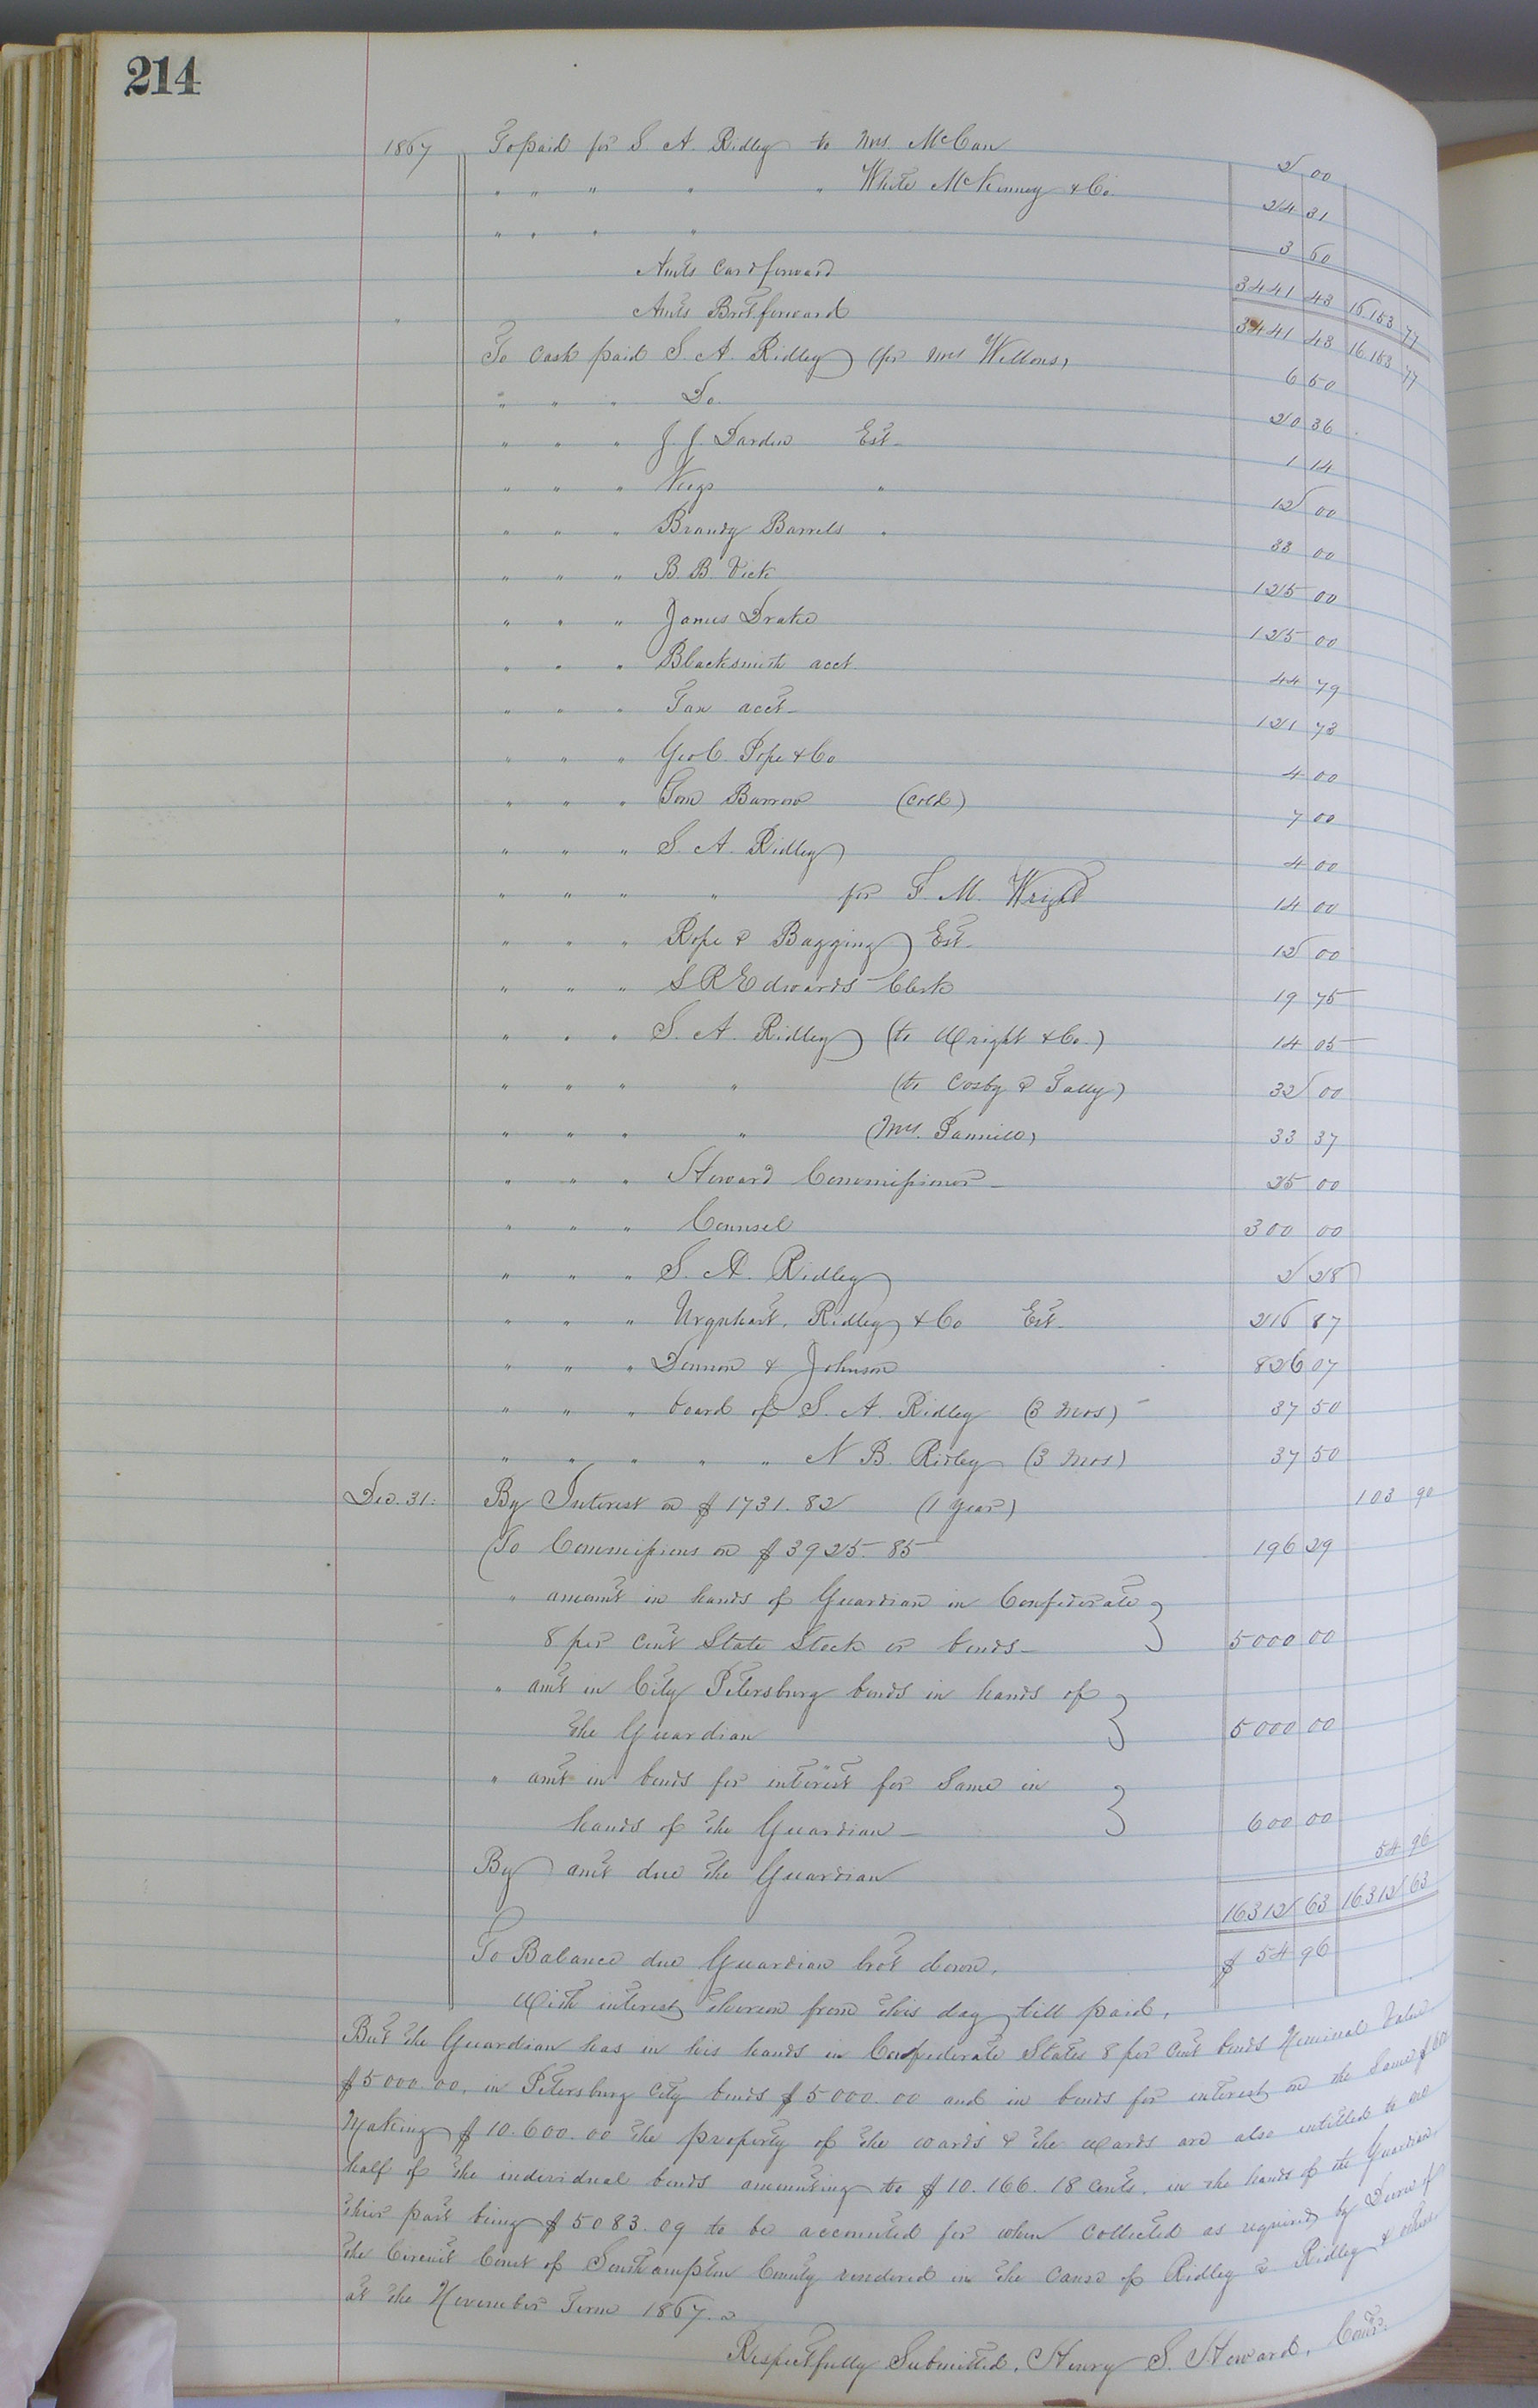 214
1867 To paid for S. A. Ridley to Mrs. McCan 2 00
" " " " " White McKinney & Co. 24 31
" " " " 3 60
Amts Card forward 3441 43 16.153 77
" Amts Brot forward 3441 43 16.153 77
To Cash paid S. A. Ridley (for Mrs Wellons) 6 50
" " " Do. 20 36
" " " J. J. Darden Est 1 14
" " " Kegs " 12 00
" " " Brandy Barrels " 33 00
" " " B. B. Vick 125 00
" " " James Drake 125 00
" " " Blacksmith acct 44 79
" " " Tax acct 121 73
" " " Geo C. Pope & Co 4 00
" " " Tom Barrow (cold) 7 00
" " " S. A. Ridley 4 00
" " " " for T. M. Wright 14 00
" " " Rope & Bagging Est 12 00
" " " L R Edwards Clerk 19 75
" " " S. A. Ridley (to Wright & Co.) 14 05
" " " " (to Cosby & Tally) 32 00
" " " " (Mrs. Pannill) 33 37
" " " Howard Commissioner 25 00
" " " Counsel 300 00
" " " S. A. Ridley 2 28
" " " Urquhart, Ridley & Co Est 216 87
" " " Dennon & Johnson 826 07
" " " board of S. A. Ridley (3 Mos) 37 50
" " " " " N B. Ridley (3 Mos) 37 50
Dec. 31. By Interest on $1731.82 (1 year) 103 90
To Commissions on $3925.85 196 29
" amount in hands of Guardian in Confederate
8 per cent State Stock or bonds 5000 00
" amt in City Petersburg bonds in hands of
the Guardian 5000 00
" amt in bonds for interest for Same in
hands of the Guardian 600 00
By amt due the Guardian 54 96
16312 63 16312 63
To Balance due Guardian brot down. $ 54 96
With interest thereon from this day till paid.
But the Guardian has in his hands in Confederate States 8 per Cent bonds Nominal Value
$5000.00, in Petersburg City bonds $5000.00 and in bonds for interest on the Same $600
Making $10.600.00 the property of the wards & the wards are also intitled to one
half of the individual bonds amounting to $10.166.18 cents. in the hands of the Guardian
their part being $5083.09 to be accounted for when Collected as required by Decree of
the Circuit Court of Southampton County rendered in the cause of Ridley vs Ridley & others
at the November Term 1867.
Respectfully Submitted, Henry S. Howard, Comr.